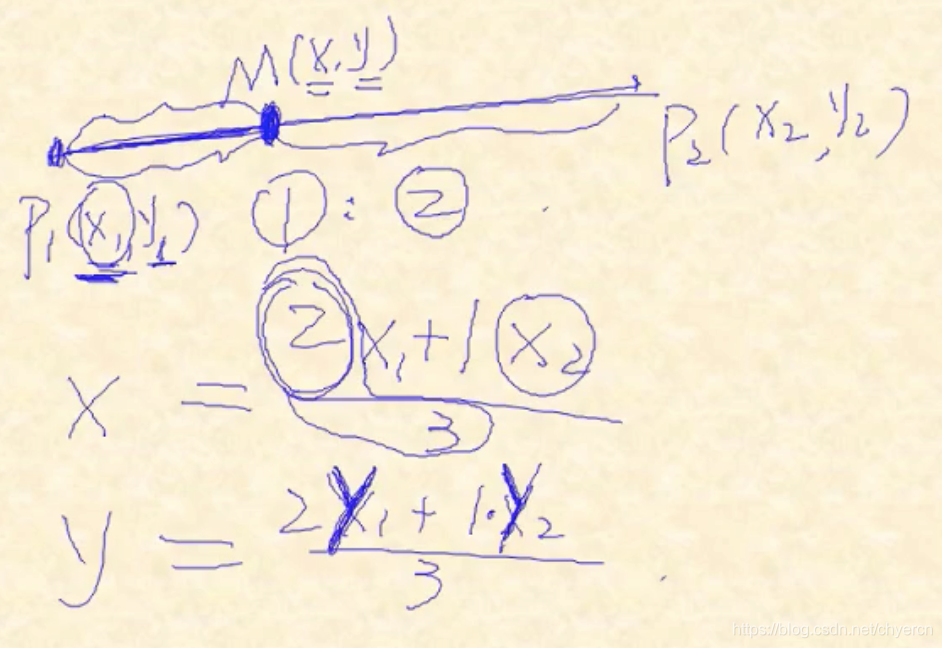 M(x,y)
P₂(x₂,y₂)
P₁(x₁,y₁) 1:2
x = (2x₁+1x₂)/3
y = (2y₁+1·y₂)/3
https://blog.csdn.net/chyercn